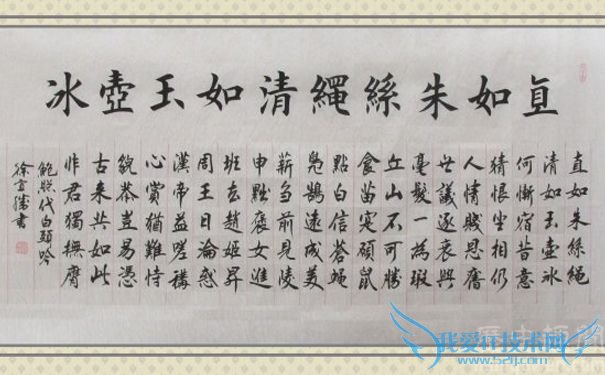 直如朱絲繩清如玉壺冰
直如朱絲繩
清如玉壺冰
何慚宿昔意
猜恨坐相仍
人情賤恩舊
世議逐衰興
毫髮一為瑕
丘山不可勝
食苗實碩鼠
點白信蒼蠅
鳧鵠遠成美
薪芻前見陵
申黜褒女進
班去趙姬昇
周王日淪惑
漢帝益嗟稱
心賞猶難恃
貌恭豈易憑
古來共如此
非君獨撫膺
鮑照代白頭吟
徐書
我爱IT技术网